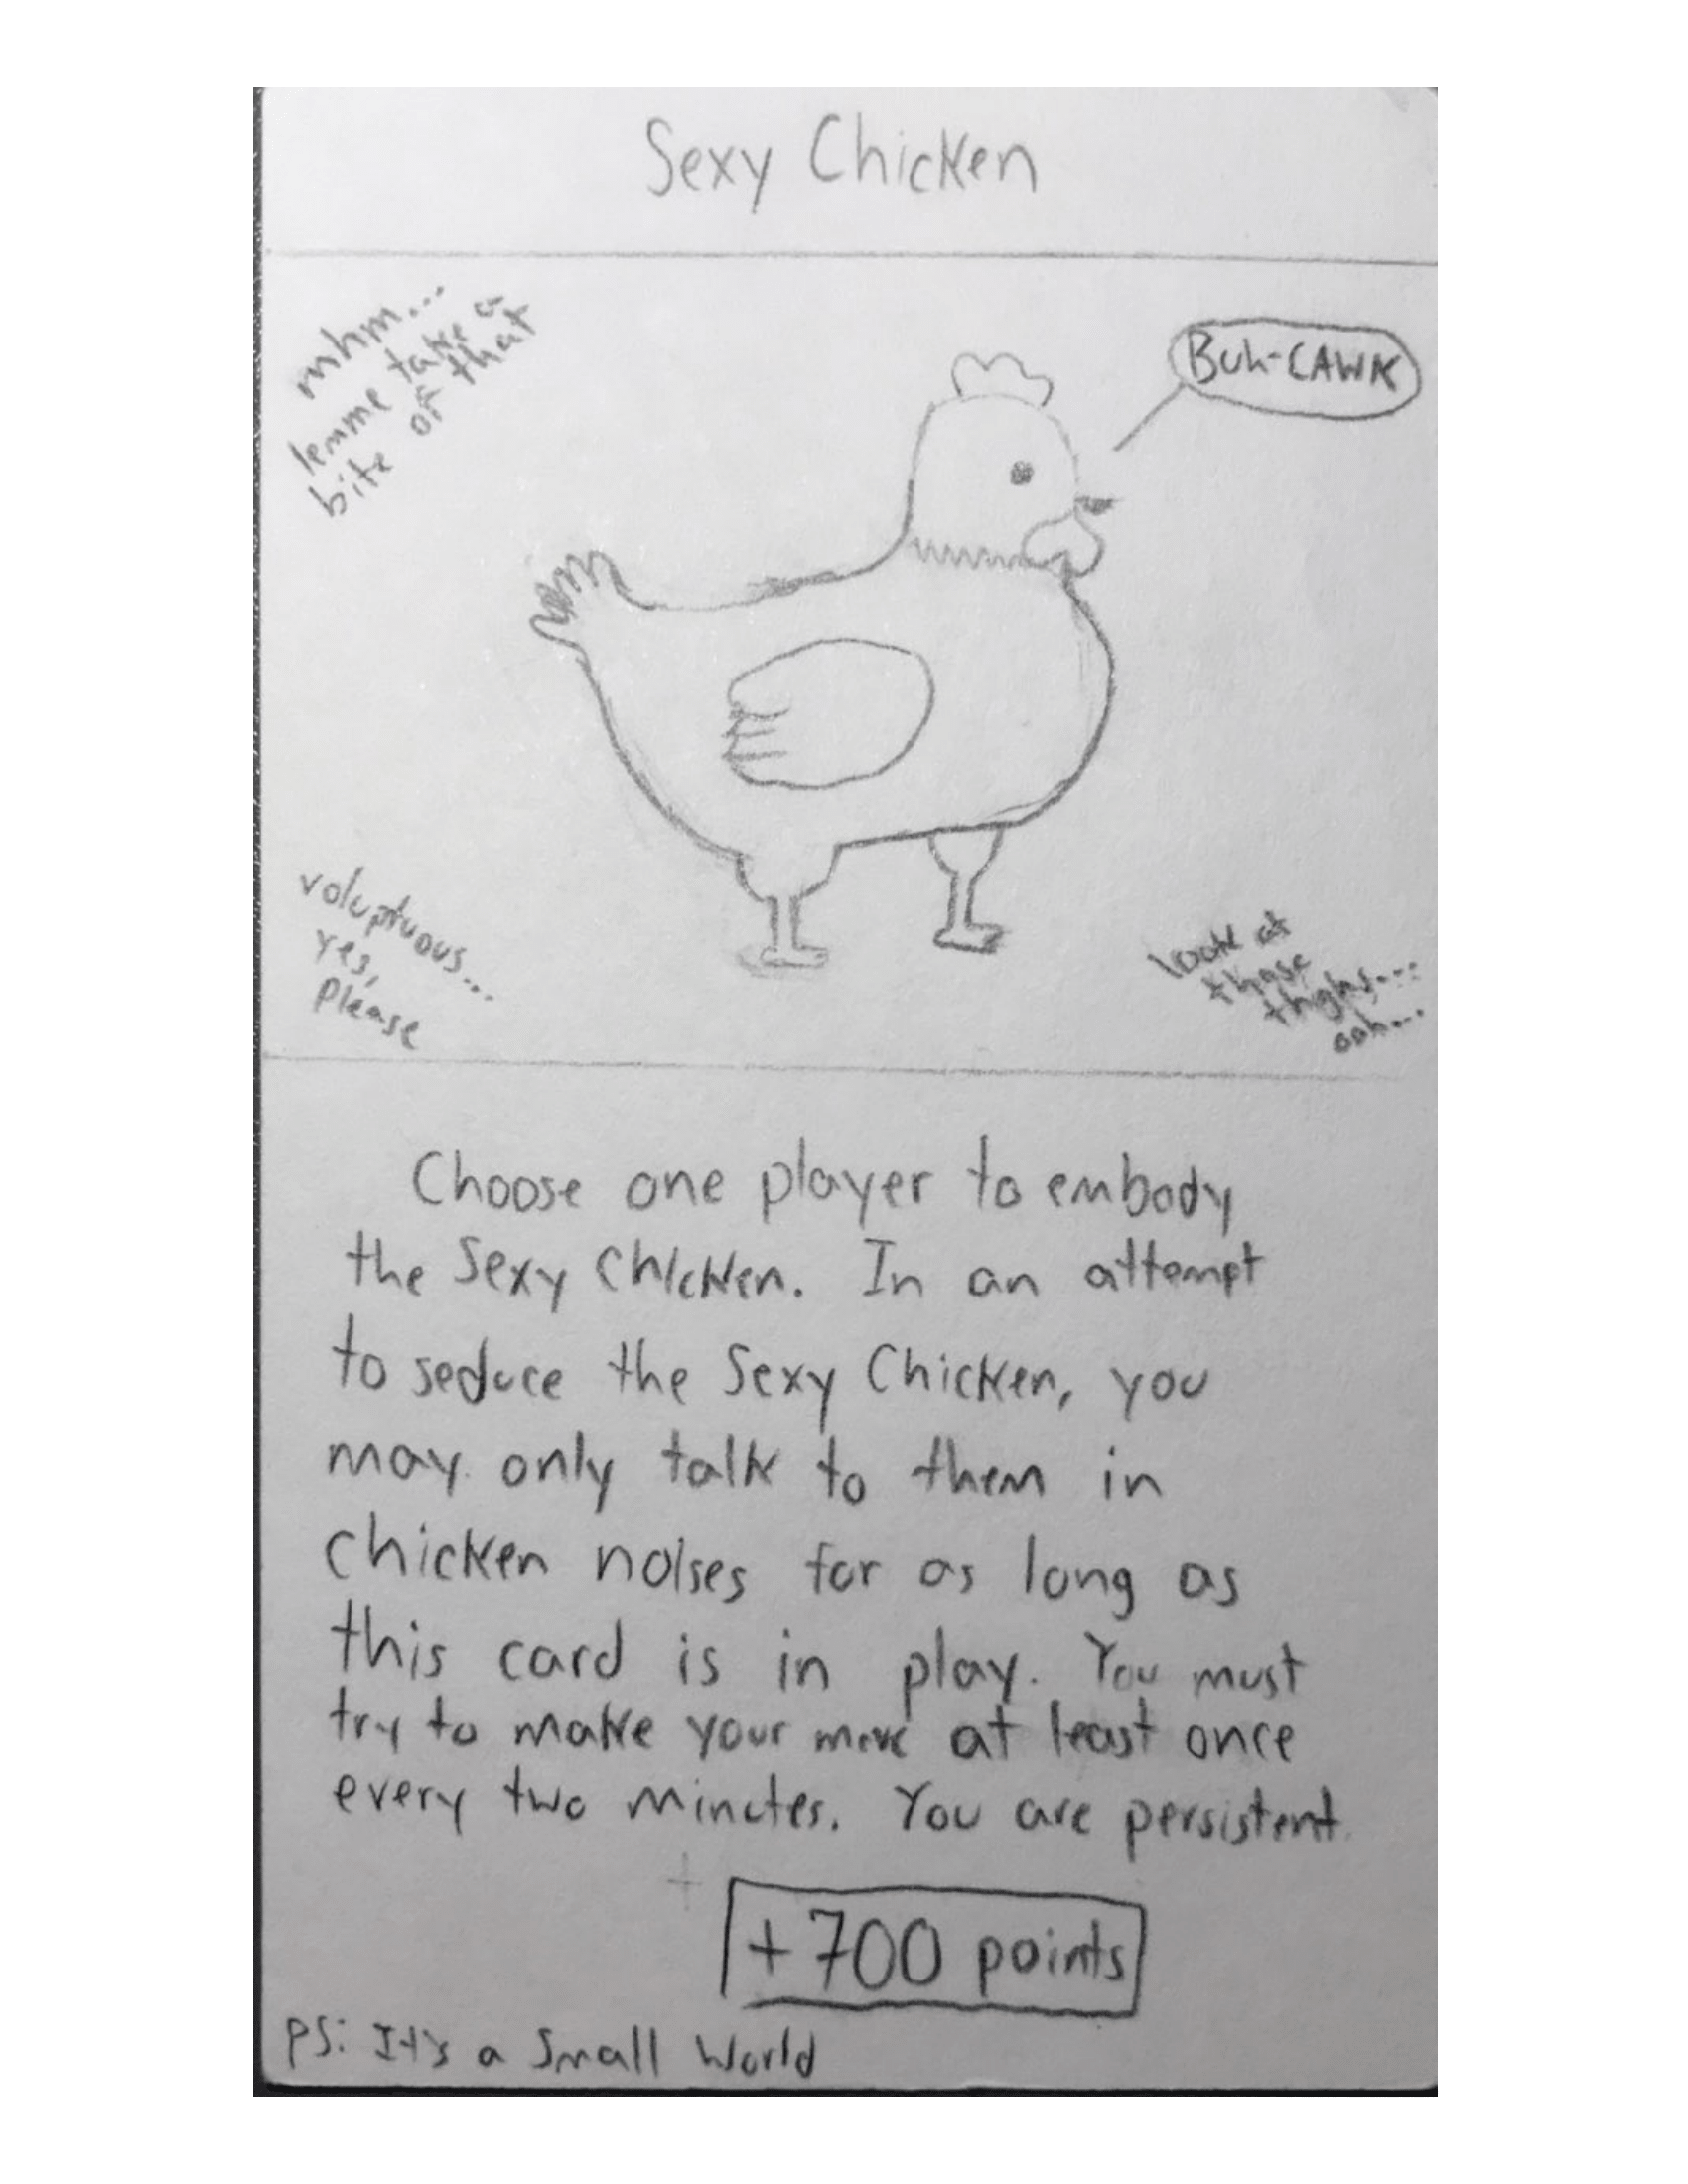 Sexy Chicken
mhm...
lemme take a
bite of that
Buh-CAWK
voluptuous...
yes,
please
look at
those
thighs...
ooh...
Choose one player to embody
the Sexy Chicken. In an attempt
to seduce the Sexy Chicken, you
may only talk to them in
chicken noises for as long as
this card is in play. You must
try to make your move at least once
every two minutes. You are persistent.
+700 points
PS: It's a Small World